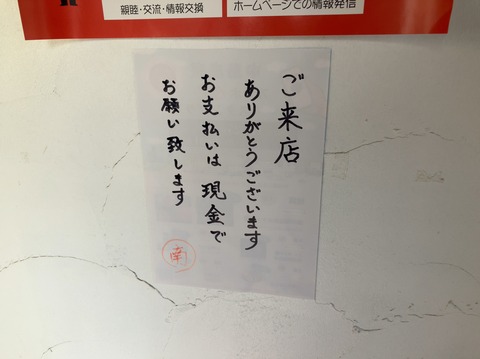 親睦・交流・情報交換
ホームページでの情報発信
ご来店
ありがとうございます
お支払いは現金で
お願い致します
南